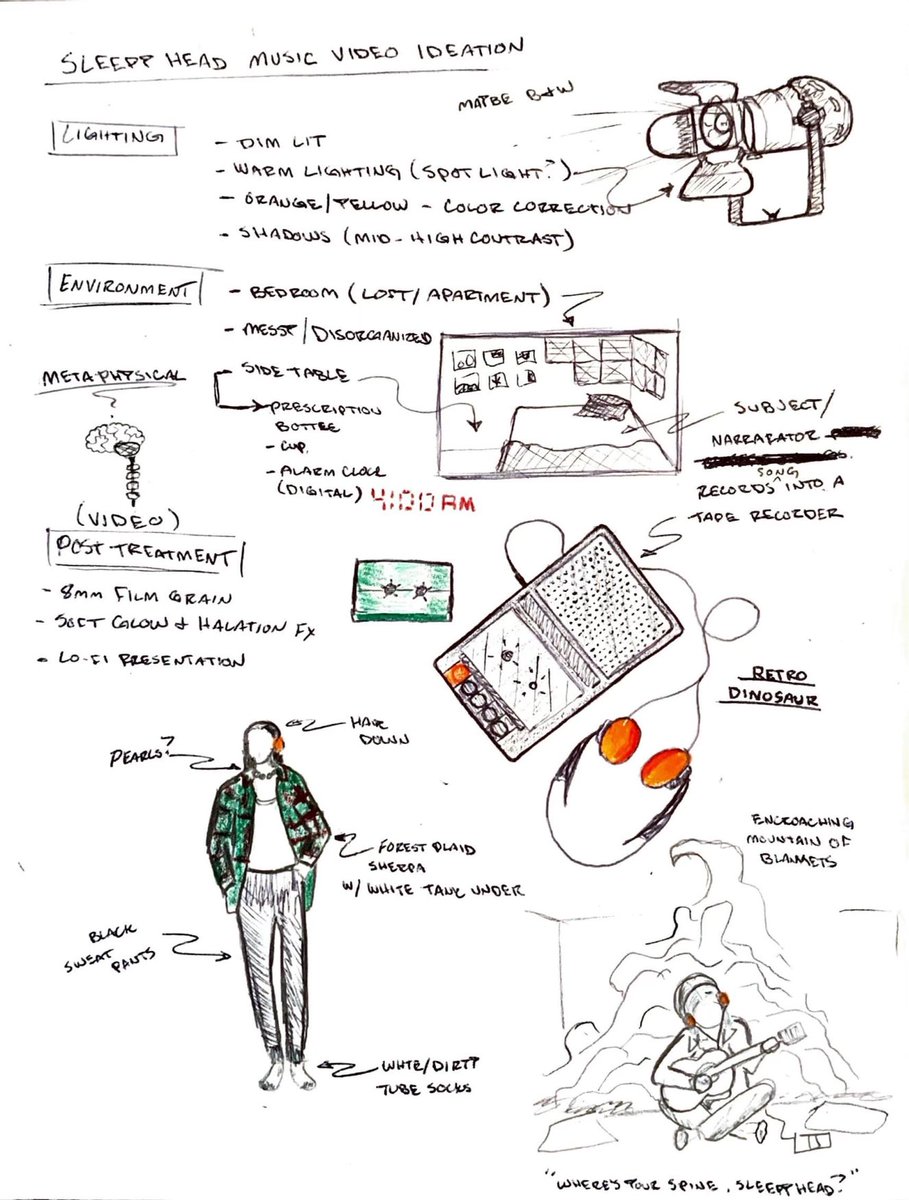 SLEEPY HEAD MUSIC VIDEO IDEATION
MAYBE B+W
LIGHTING
- DIM LIT
- WARM LIGHTING (SPOT LIGHT?)
- ORANGE/YELLOW - COLOR CORRECTION
- SHADOWS (MID-HIGH CONTRAST)
ENVIRONMENT
- BEDROOM (LOFT/APARTMENT)
- MESSY/DISORGANIZED
- SIDE TABLE
PRESCRIPTION
BOTTLE
- CUP
- ALARM CLOCK
(DIGITAL)
4:00 AM
METAPHYSICAL
SUBJECT/
NARRARATOR
RECORDS SONG INTO A
TAPE RECORDER
(VIDEO)
POST TREATMENT
- 8MM FILM GRAIN
- SOFT GLOW + HALATION FX
- LO-FI PRESENTATION
RETRO
DINOSAUR
HAIR
DOWN
PEARLS?
FOREST PLAID
SHERPA
W/ WHITE TANK UNDER
BLACK
SWEAT
PANTS
WHTE/DIRTY
TUBE SOCKS
ENCROACHING
MOUNTAIN OF
BLANKETS
"WHERE'S YOUR SPINE, SLEEPYHEAD?"